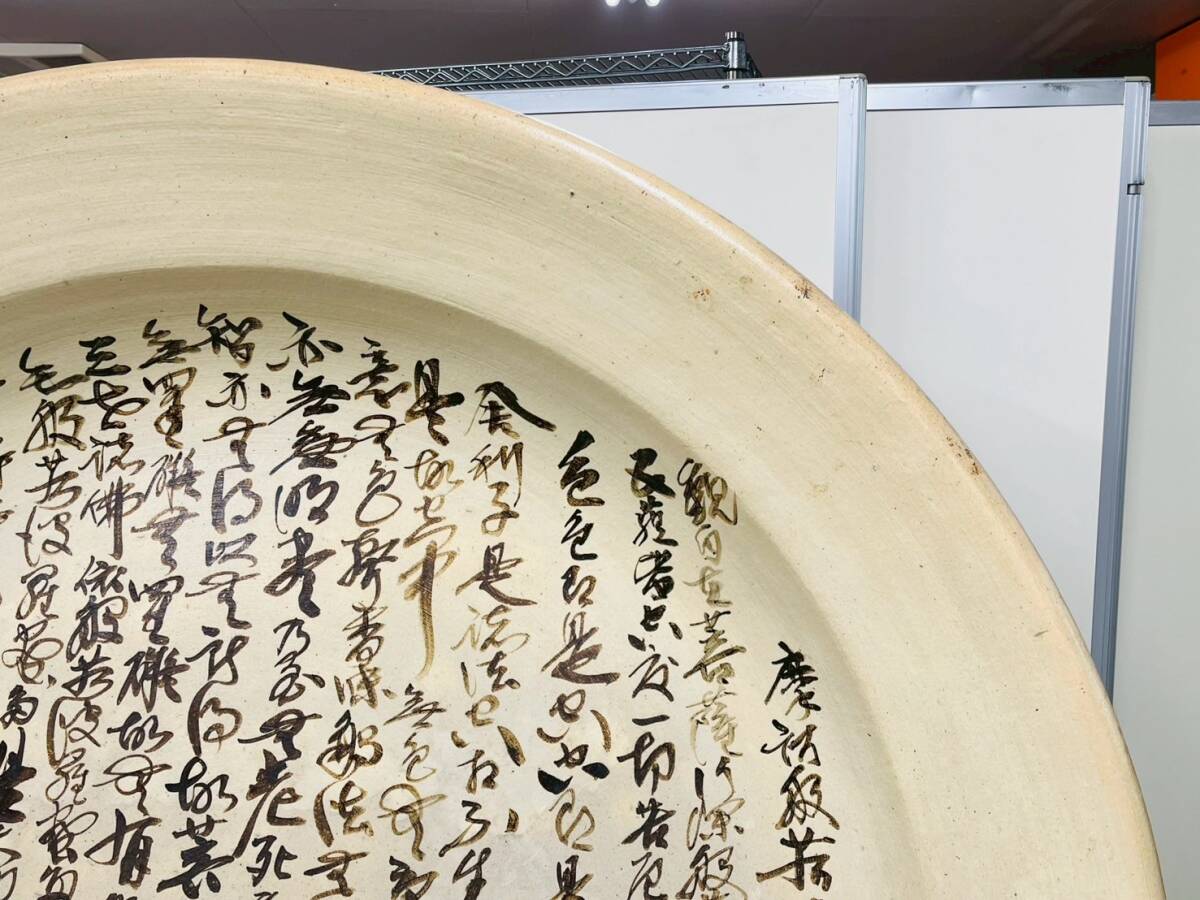 摩訶般若
観自在菩薩行深般
五蘊皆空度一切苦厄
色色即是空空即是
舎利子是諸法空相不生
是故空中無色無受
意無色聲香味触法無
亦無無明尽乃至無老死
智亦無得以無所得故菩
無罣礙無罣礙故無有
三世諸佛依般若波羅蜜多
知般若波羅蜜多是